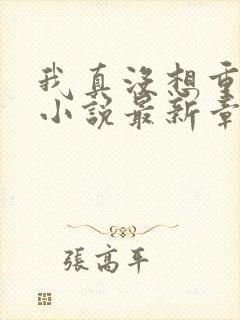 我真没想重
小說最新章
張高平